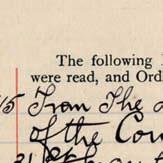 The following
were read, and Ord
15 From The
of the Com